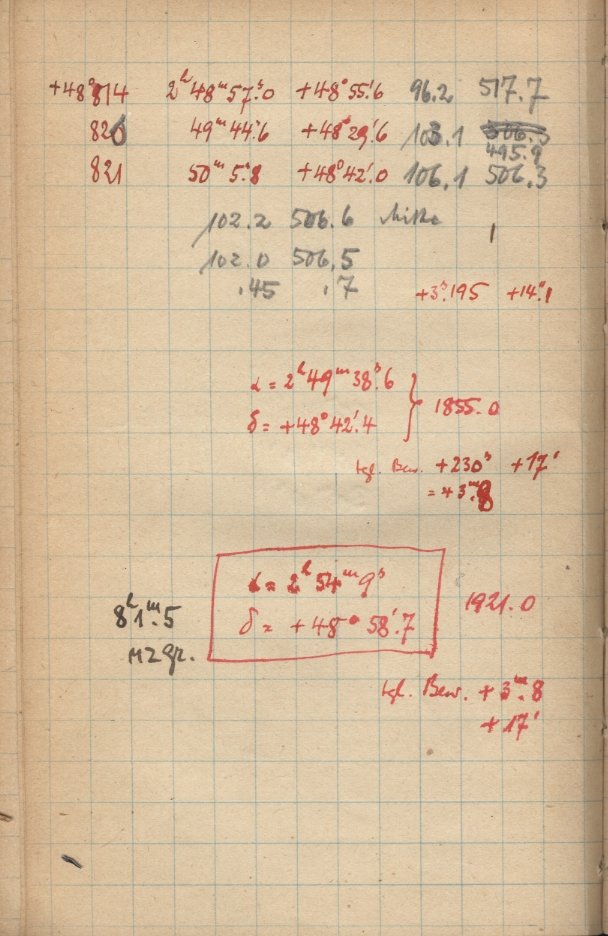 +48°814 2ʰ48ᵐ57ˢ.0 +48°55'.6 96.2 517.7
820 49ᵐ44ˢ.6 +48°29'.6 103.1 506.3
495.9
821 50ᵐ5ˢ.8 +48°42'.0 106.1 506.3
102.2 506.6 Mitte
102.0 506.5
.45 .7 +3ˢ.195 +14".1
α = 2ʰ49ᵐ38ˢ.6
1855.0
δ = +48°42'.4
tgl. Bew. +230ˢ +17'
= +3ᵐ.8
α = 2ʰ54ᵐ9ˢ
8ʰ1ᵐ.5 1921.0
δ = +48°58'.7
MZGr.
tgl. Bew. +3ᵐ.8
+17'